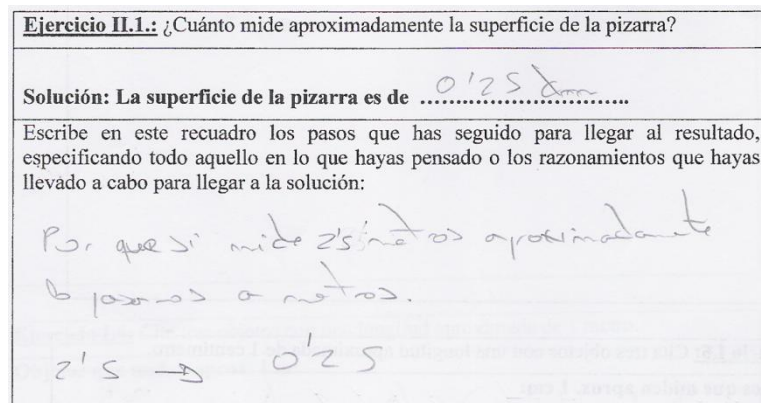 Ejercicio II.1.: ¿Cuánto mide aproximadamente la superficie de la pizarra?
Solución: La superficie de la pizarra es de 0'25 dam
Escribe en este recuadro los pasos que has seguido para llegar al resultado,
especificando todo aquello en lo que hayas pensado o los razonamientos que hayas
llevado a cabo para llegar a la solución:
Por que si mide 2'5 metros aproximadamente
lo pasamos a metros.
2'5 → 0'25